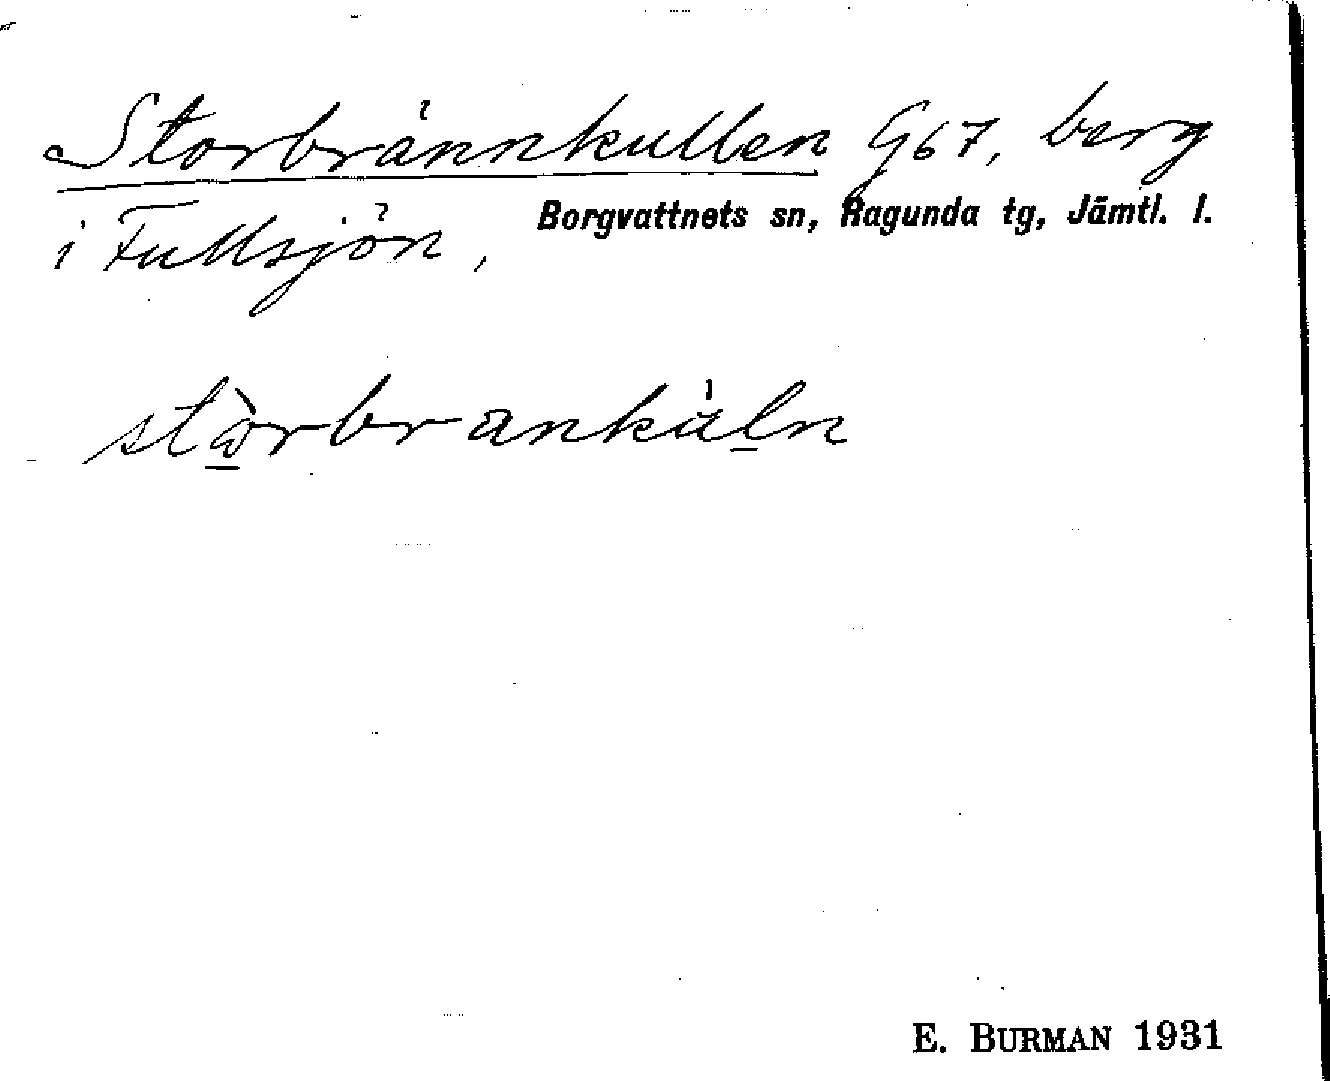 Storbrännkullen G67, berg
i Fullsjön, Borgvattnets sn, Ragunda tg, Jämtl. l.
stòrbrankúln
E. BURMAN 1931